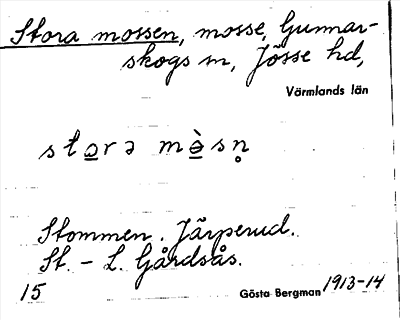 Stora mossen, mosse, Gunnar-
skogs sn, Jösse hd,
Värmlands län
stə̲rə mə̲̀sn̥
Stommen. Järperud.
St. - L. Gårdsås.
15 Gösta Bergman 1913-14